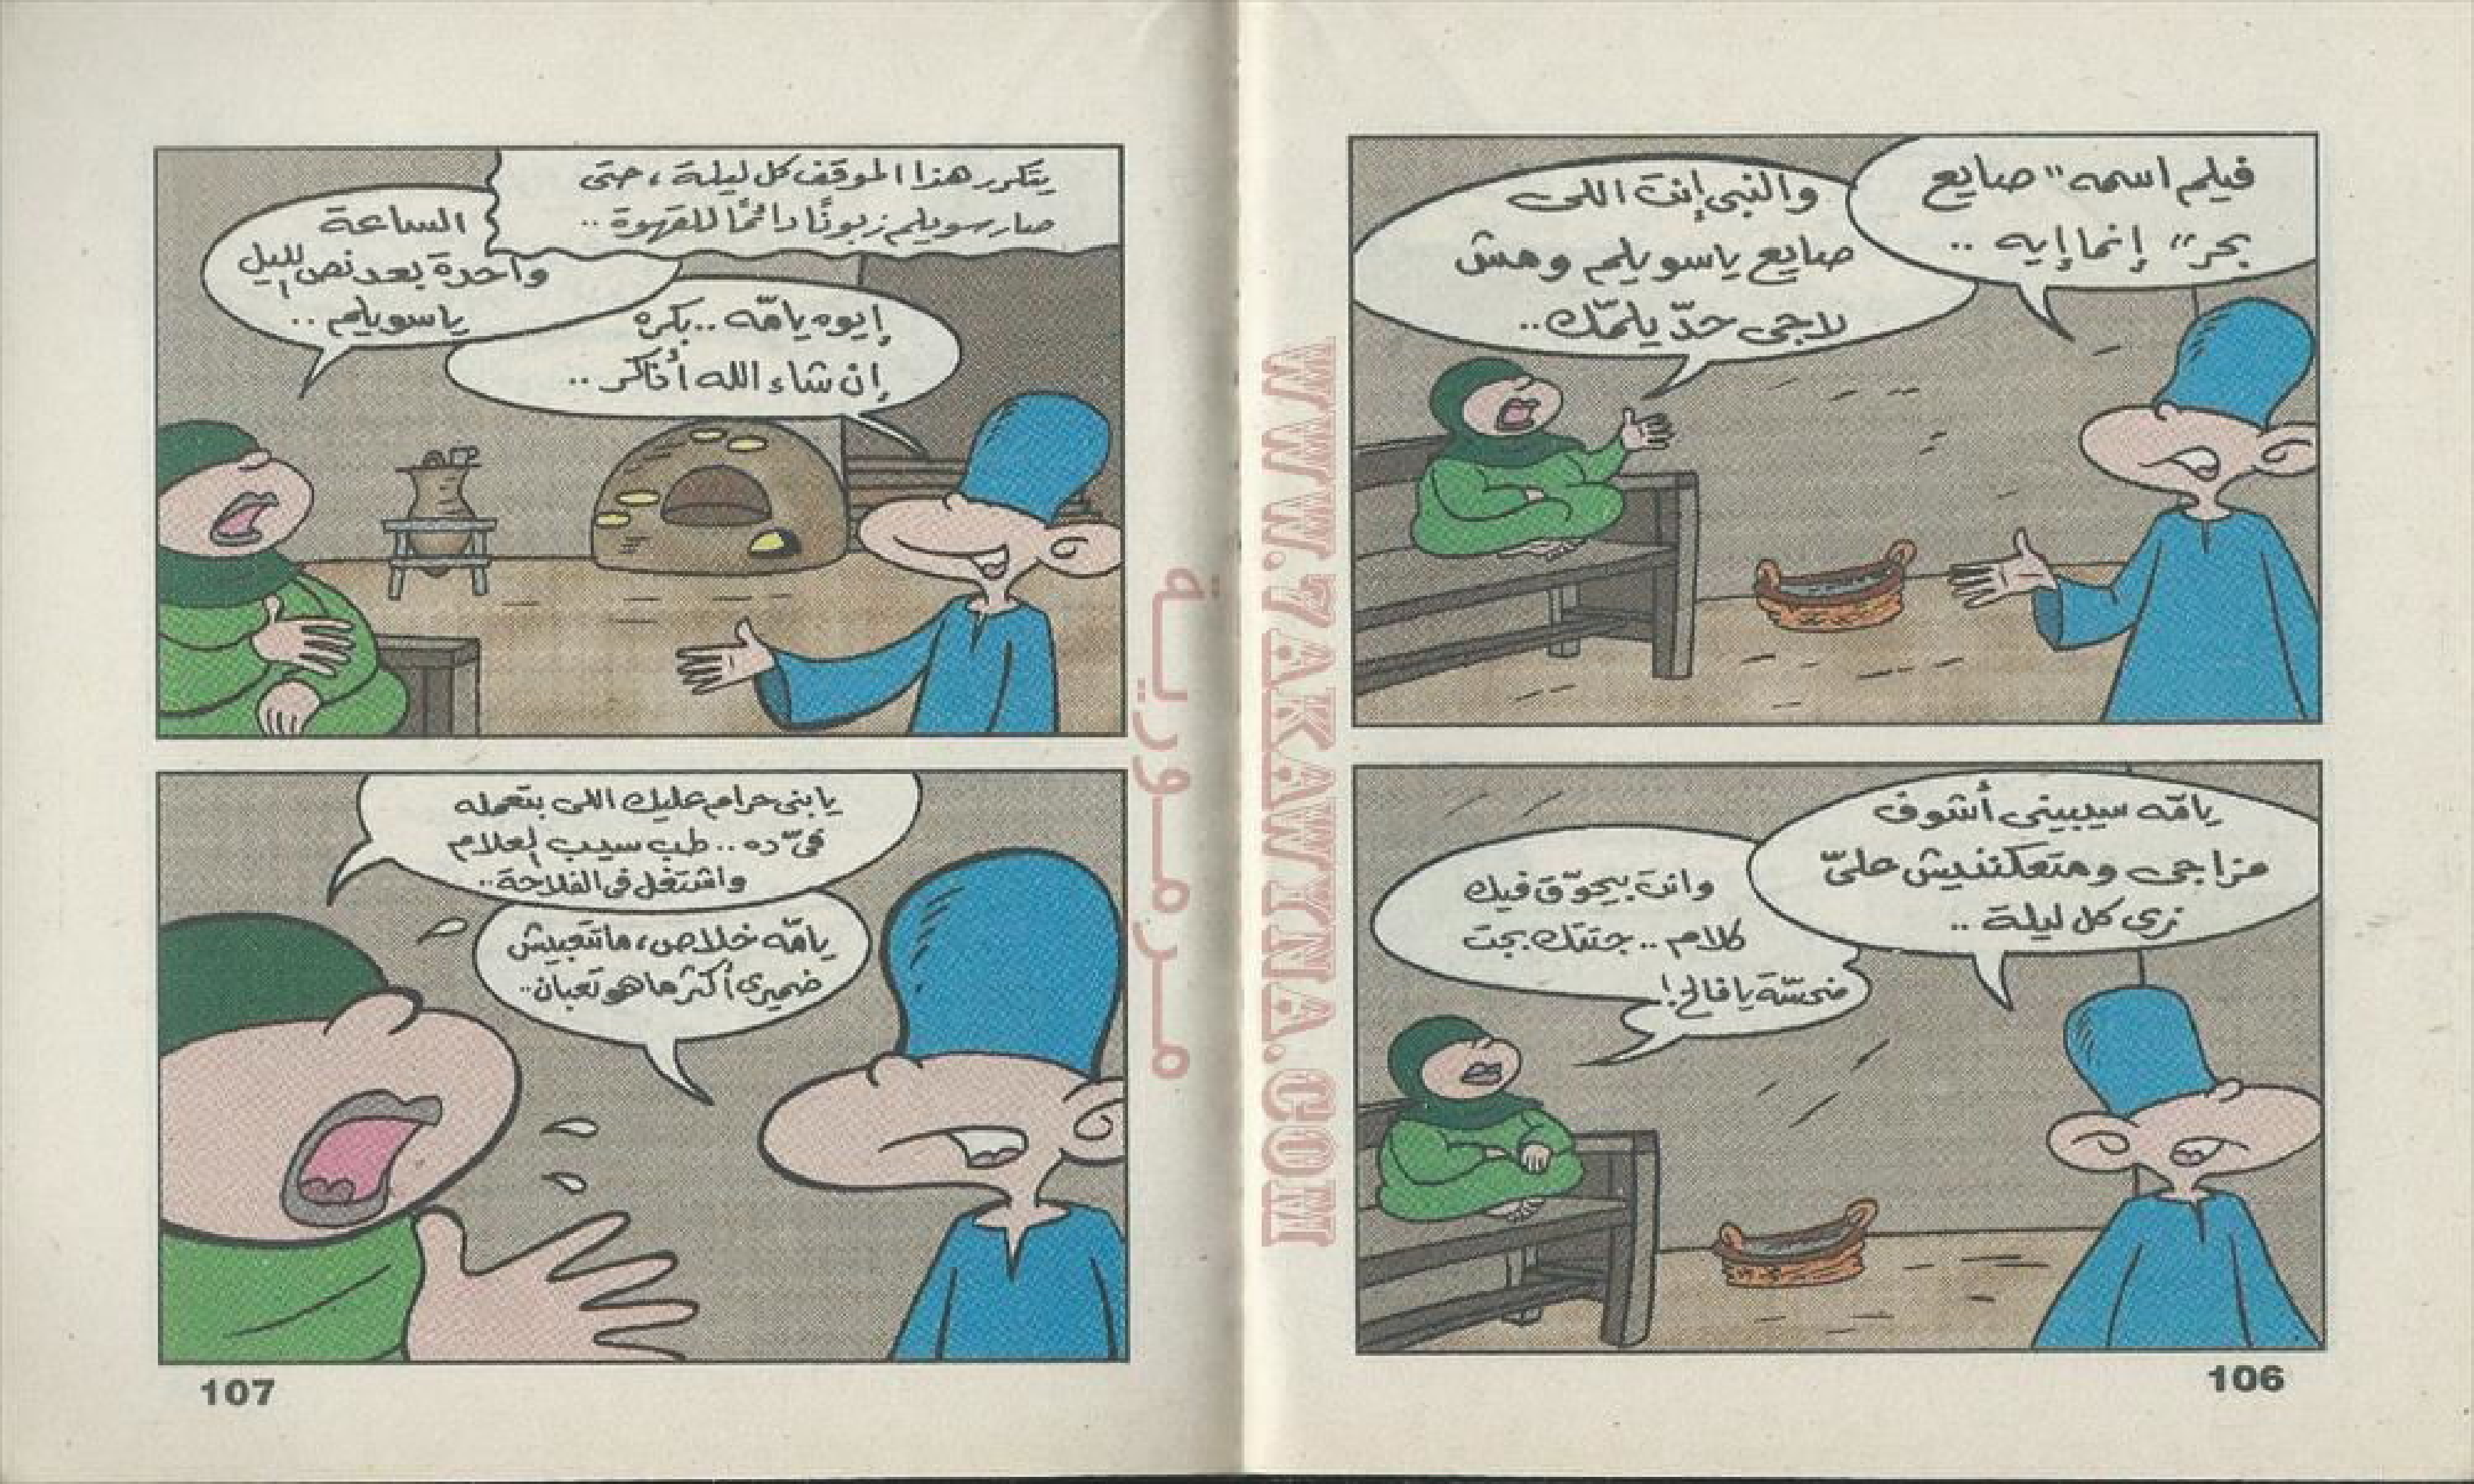 فيلم اسمه "صايع
بحر" إنما إيه ..
والنبى إنت اللى
صايع ياسويلم ومش
لاجى حدّ يلمّك ..
يامّه سيبينى أشوف
مزاجى ومتعكننيش علىّ
زى كل ليلة ..
وانت بيحوّق فيك
كلام .. جتتك بجت
منحسّة يا فالح!
106
يتكرر هذا الموقف كل ليلة، حتى
صار سويلم زبونًا دائمًا للقهوة ..
الساعة
واحدة بعد نص الليل
ياسويلم ..
إيوه يامّه .. بكره
إن شاء الله أذاكر ..
يابنى حرام عليك اللى بتعمله
فىّ ده .. طب سيب العلام
واشتغل فى الفلاحة ..
يامّه خلاص، ماتتعبيش
ضميرى أكتر ما هو تعبان ..
107
مرمورية
WWW.7AKAWYNA.COM